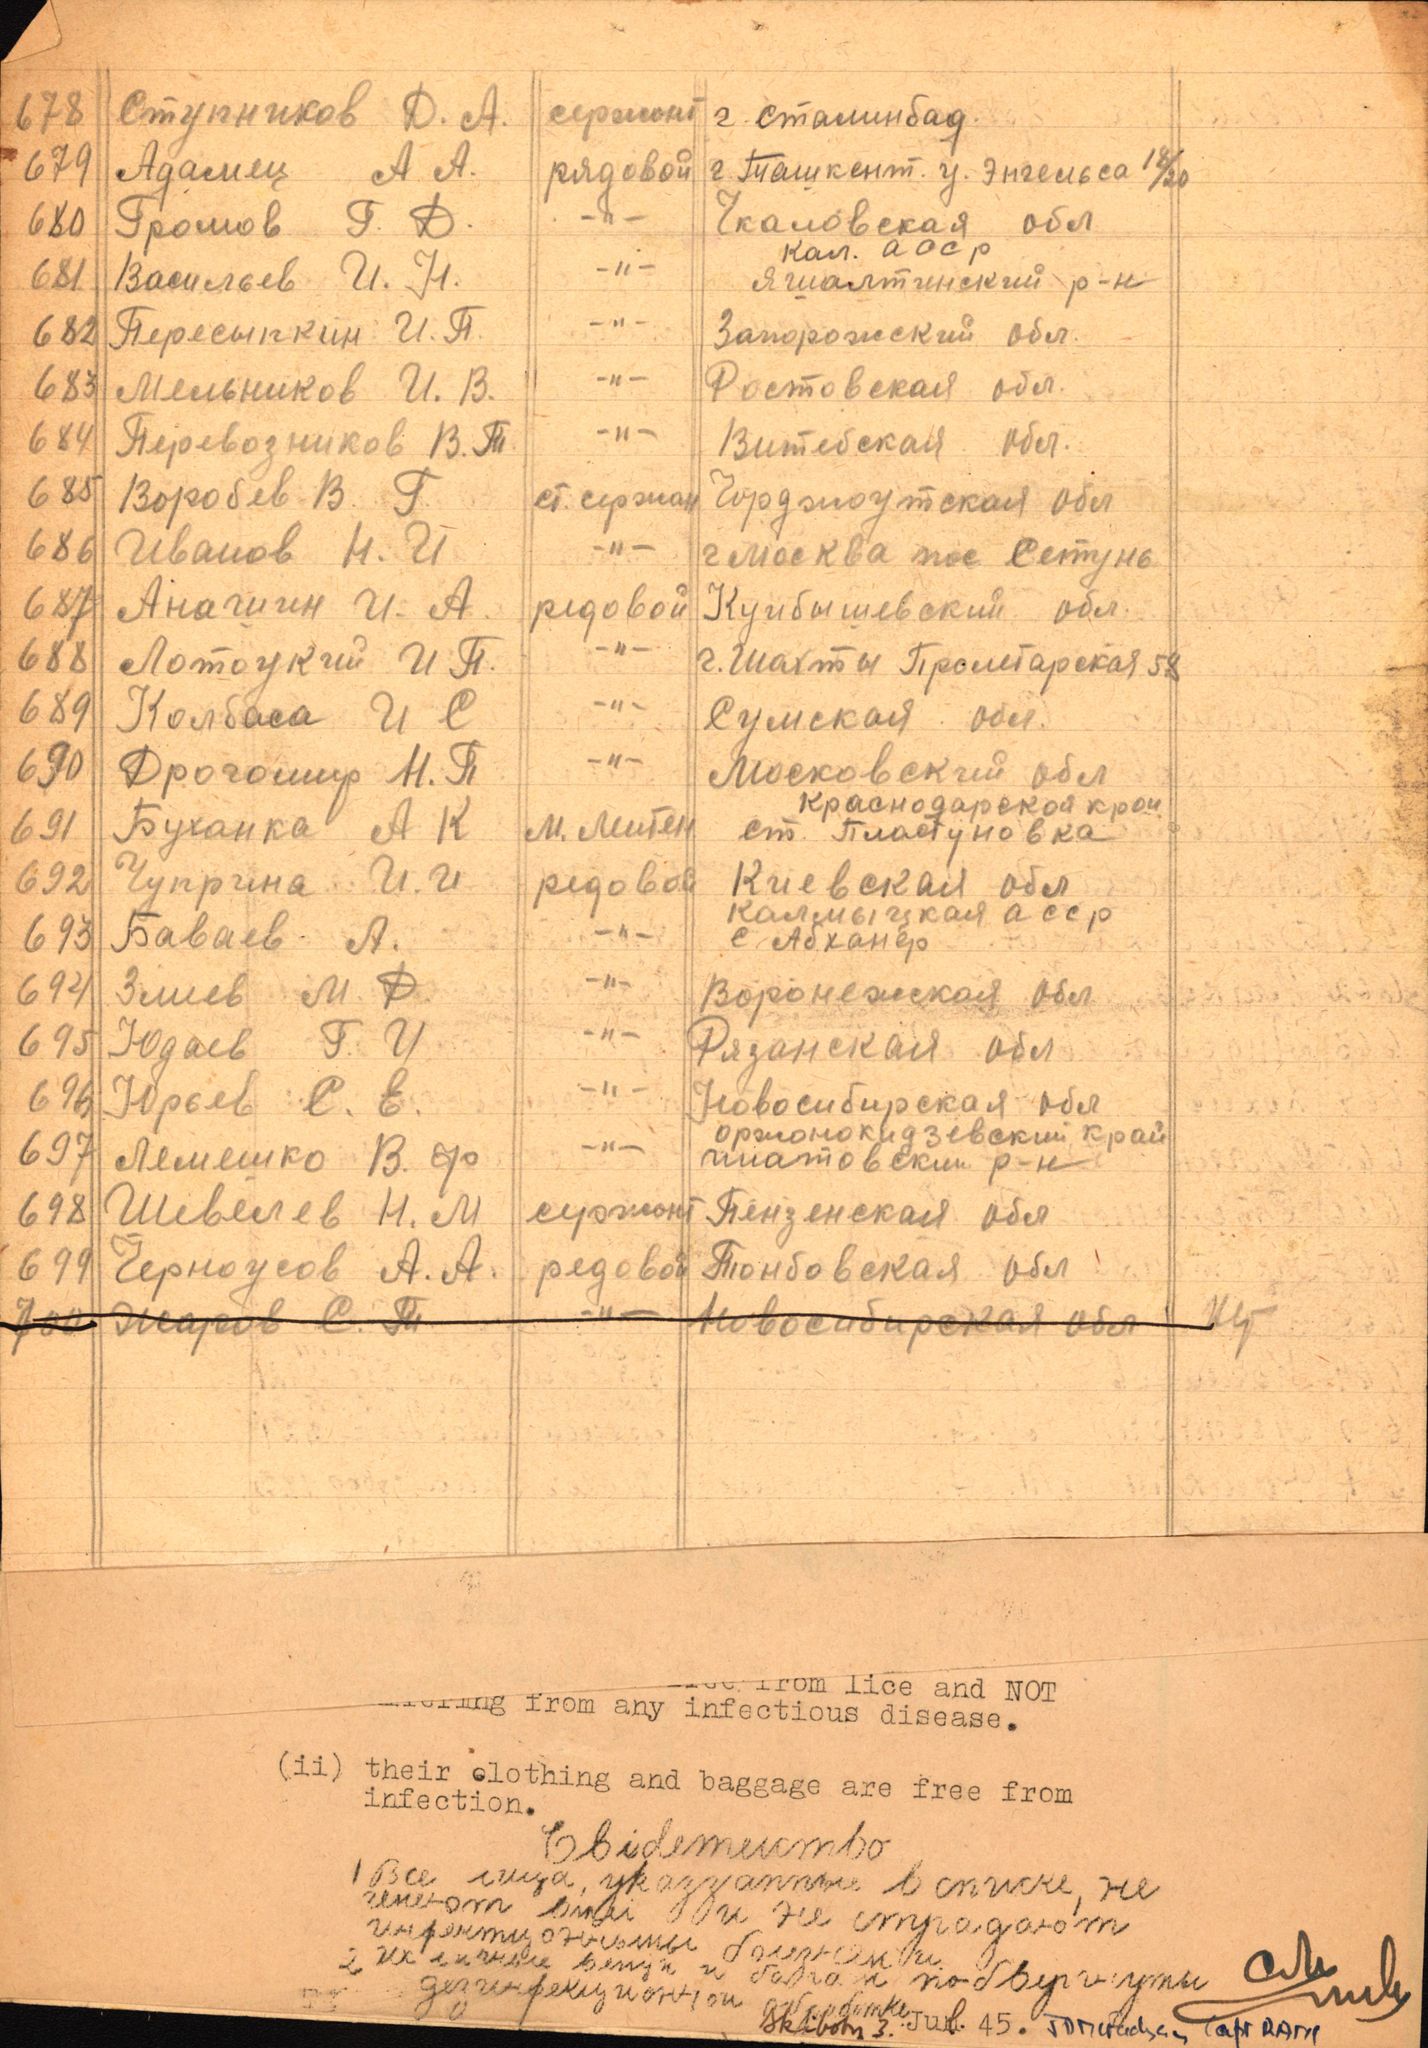 678 Ступников Д. А. сержант г. Сталинбад.
679 Адамец А А. рядовой г. Ташкент. у. Энгельса 18/20
680 Громов Г. Д. -"- Чкаловская обл
681 Васильев И. Н. -"- Кал. АССР
Яшалтинский р-н
682 Пересыпкин И.П. -"- Запорожский обл.
683 Мельников И. В. -"- Ростовская обл.
684 Перевозников В.Т. -"- Витебская обл.
685 Воробев В. Г. ст. сержан Чорджоутская обл
686 Иванов Н. И -"- г Москва пос Сетунь
687 Аначшин И. А. редовой Куйбышевский обл.
688 Лотоукий И П. -"- г. Шахты Пролетарская 58
689 Колбаса И С -"- Сумская обл.
690 Дрогомир Н. П -"- Московский обл
691 Буханка А К М. Литен Краснодарской край
ст. Пластуновка
692 Чупрina И. И редовой Киевская обл
693 Баваев А. -"- Калмыцкая АССР
с Абханер
694 Змиев М Д -"- Воронежская обл
695 Юдаев Г. И -"- Рязанская обл
696 Юрьев С. Е. -"- Новосибирская обл
697 Лемешко В. Ф -"- Оржонокидзевский край
р-н
698 Шевелев Н. М сержант Пензенская обл
699 Черноусов А. А. редовой Тонбовская обл
700 Жаров С. Т -"- Новосибирская обл
from lice and NOT
from any infectious disease.
(ii) their clothing and baggage are free from
infection.
1 Все лица, указанные в списке, не
и не страдают
2 их личные вещи и багаж подвергнуты
3. Jul. 45. Capt RAMC